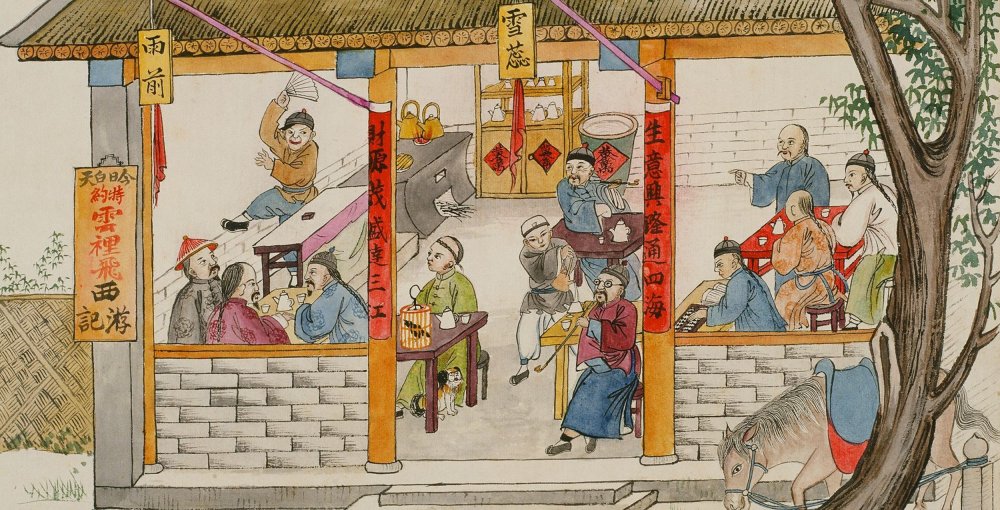 雨前
雪蕊
今日白天
特約
雲裡飛
西游記
生意興隆通四海
財源茂盛達三江